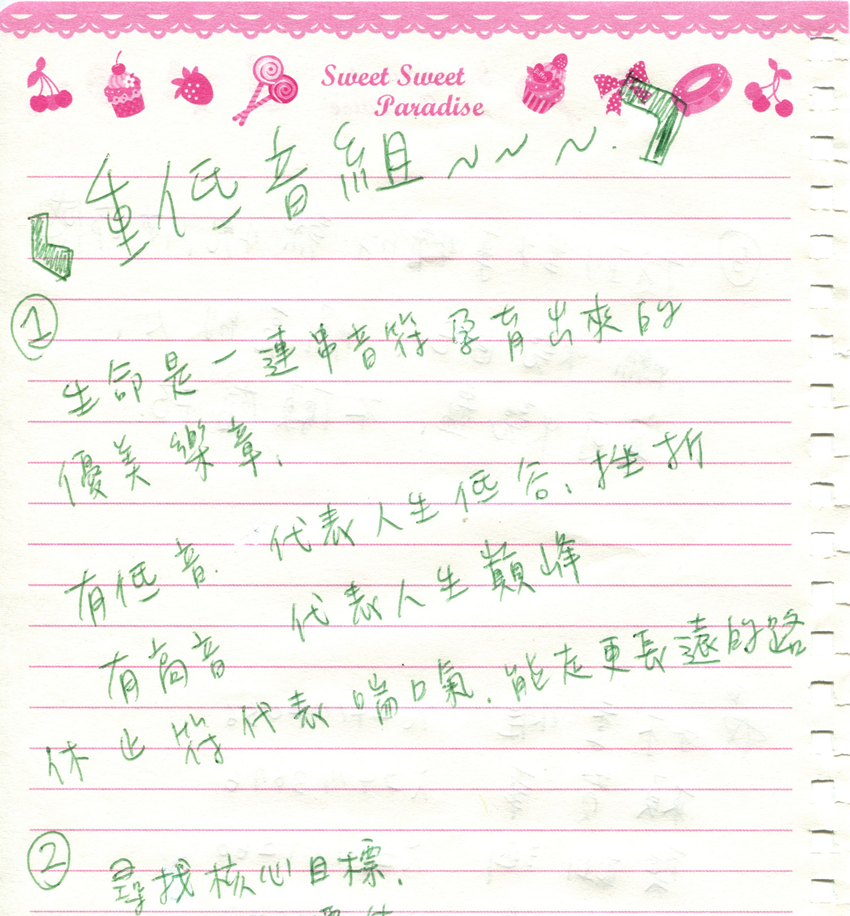 Sweet Sweet
Paradise
重低音組~~~.
①
生命是一連串音符孕育出來的
優美樂章.
有低音. 代表人生低谷、挫折
有高音 代表人生巔峰
休止符代表喘口氣.能走更長遠的路
② 尋找核心目標.